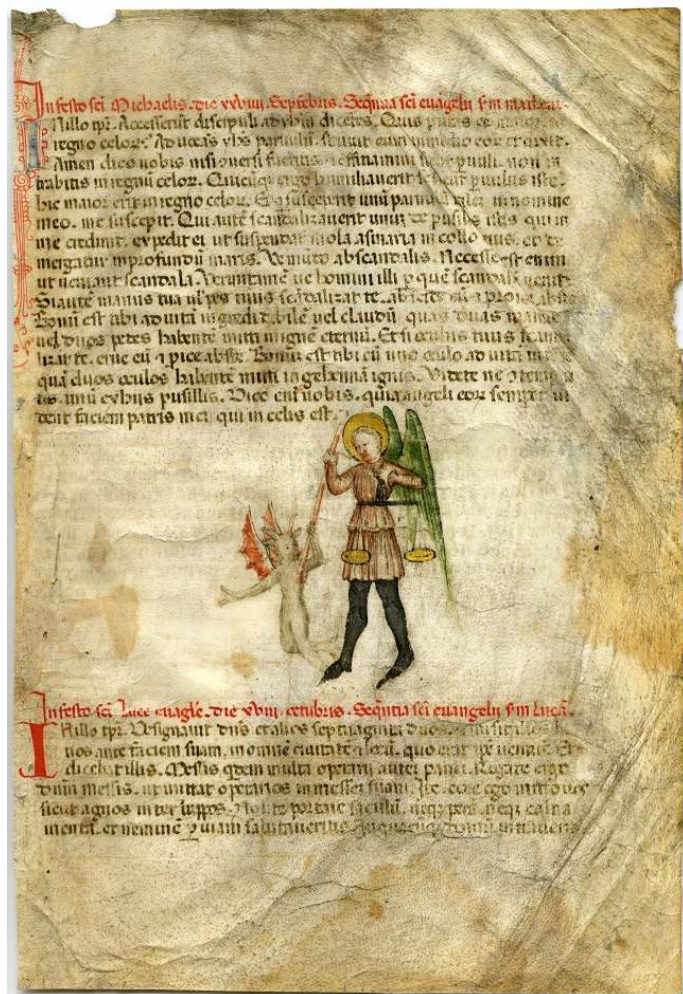 In festo sci Michaelis. die xxviiii. Septebris. Sequtia sci euagelii
Nillo tpr. Accesserut discipuli ad yhm dicetes. Quis
regno celor. Aduocas yhs paruulu. statuit eum in medio eor et dixit.
Amen dico uobis nisi quersi fueritis. efficiamini sic puuli. non in
trabitis in regnu celor. Quicuqz ergo humiliauerit se sicut puulus iste.
hic maior erit in regno celor. Et q susceperit unu paruulu tale in nomine
meo. me suscepit. Qui aute scandalizauerit unuz de pusillis istis qui in
me credunt. expedit ei ut suspendat mola asinaria in collo eius. et de
mergatur in profundu maris. Ve muto ab scandalis. Necesse est enim
ut ueniant scandala. Veruntame ue homini illi p que scandalu uenit.
Si aute manus tua ul pes tuus scadalizat te. abscide eu 7 proice abs te
Bonu est tibi ad uita ingredi debile uel claudu. quaz duas manus
uel duos pedes habente mitti in igne eternu. Et si oculus tuus scanda
lizat te. erue eu 7 pice abs te. Bonu est tibi cu uno oculo ad uita
qua duos oculos habente mitti in gehenna ignis. Videte ne 9tempn
tis unu ex hiis pusillis. Dico eni uobis. quia angeli eor semper ui
dent faciem patris mei. qui in celis est.
In festo sci Luce euagle. die xviii. octubris. Sequtia sci euangelii sm Luca.
I Nillo tpr. Designauit dns et alios septuaginta duos. misit illos bi
nos ante faciem suam. in omne ciuitate 7 locu. quo erat ipe uenturus. Et
dicebat illis. Messis qdem multa operarii autez pauci. Rogate ergo
dnm messis. ut mittat operarios in messez suam. Ite. ecce ego mitto uos
sicut agnos inter lupos. Nolite portare sacculu. neqz pera. neqz calcia
menta. et nemine p uiam salutaueritis. In quacuqz domu intraueris